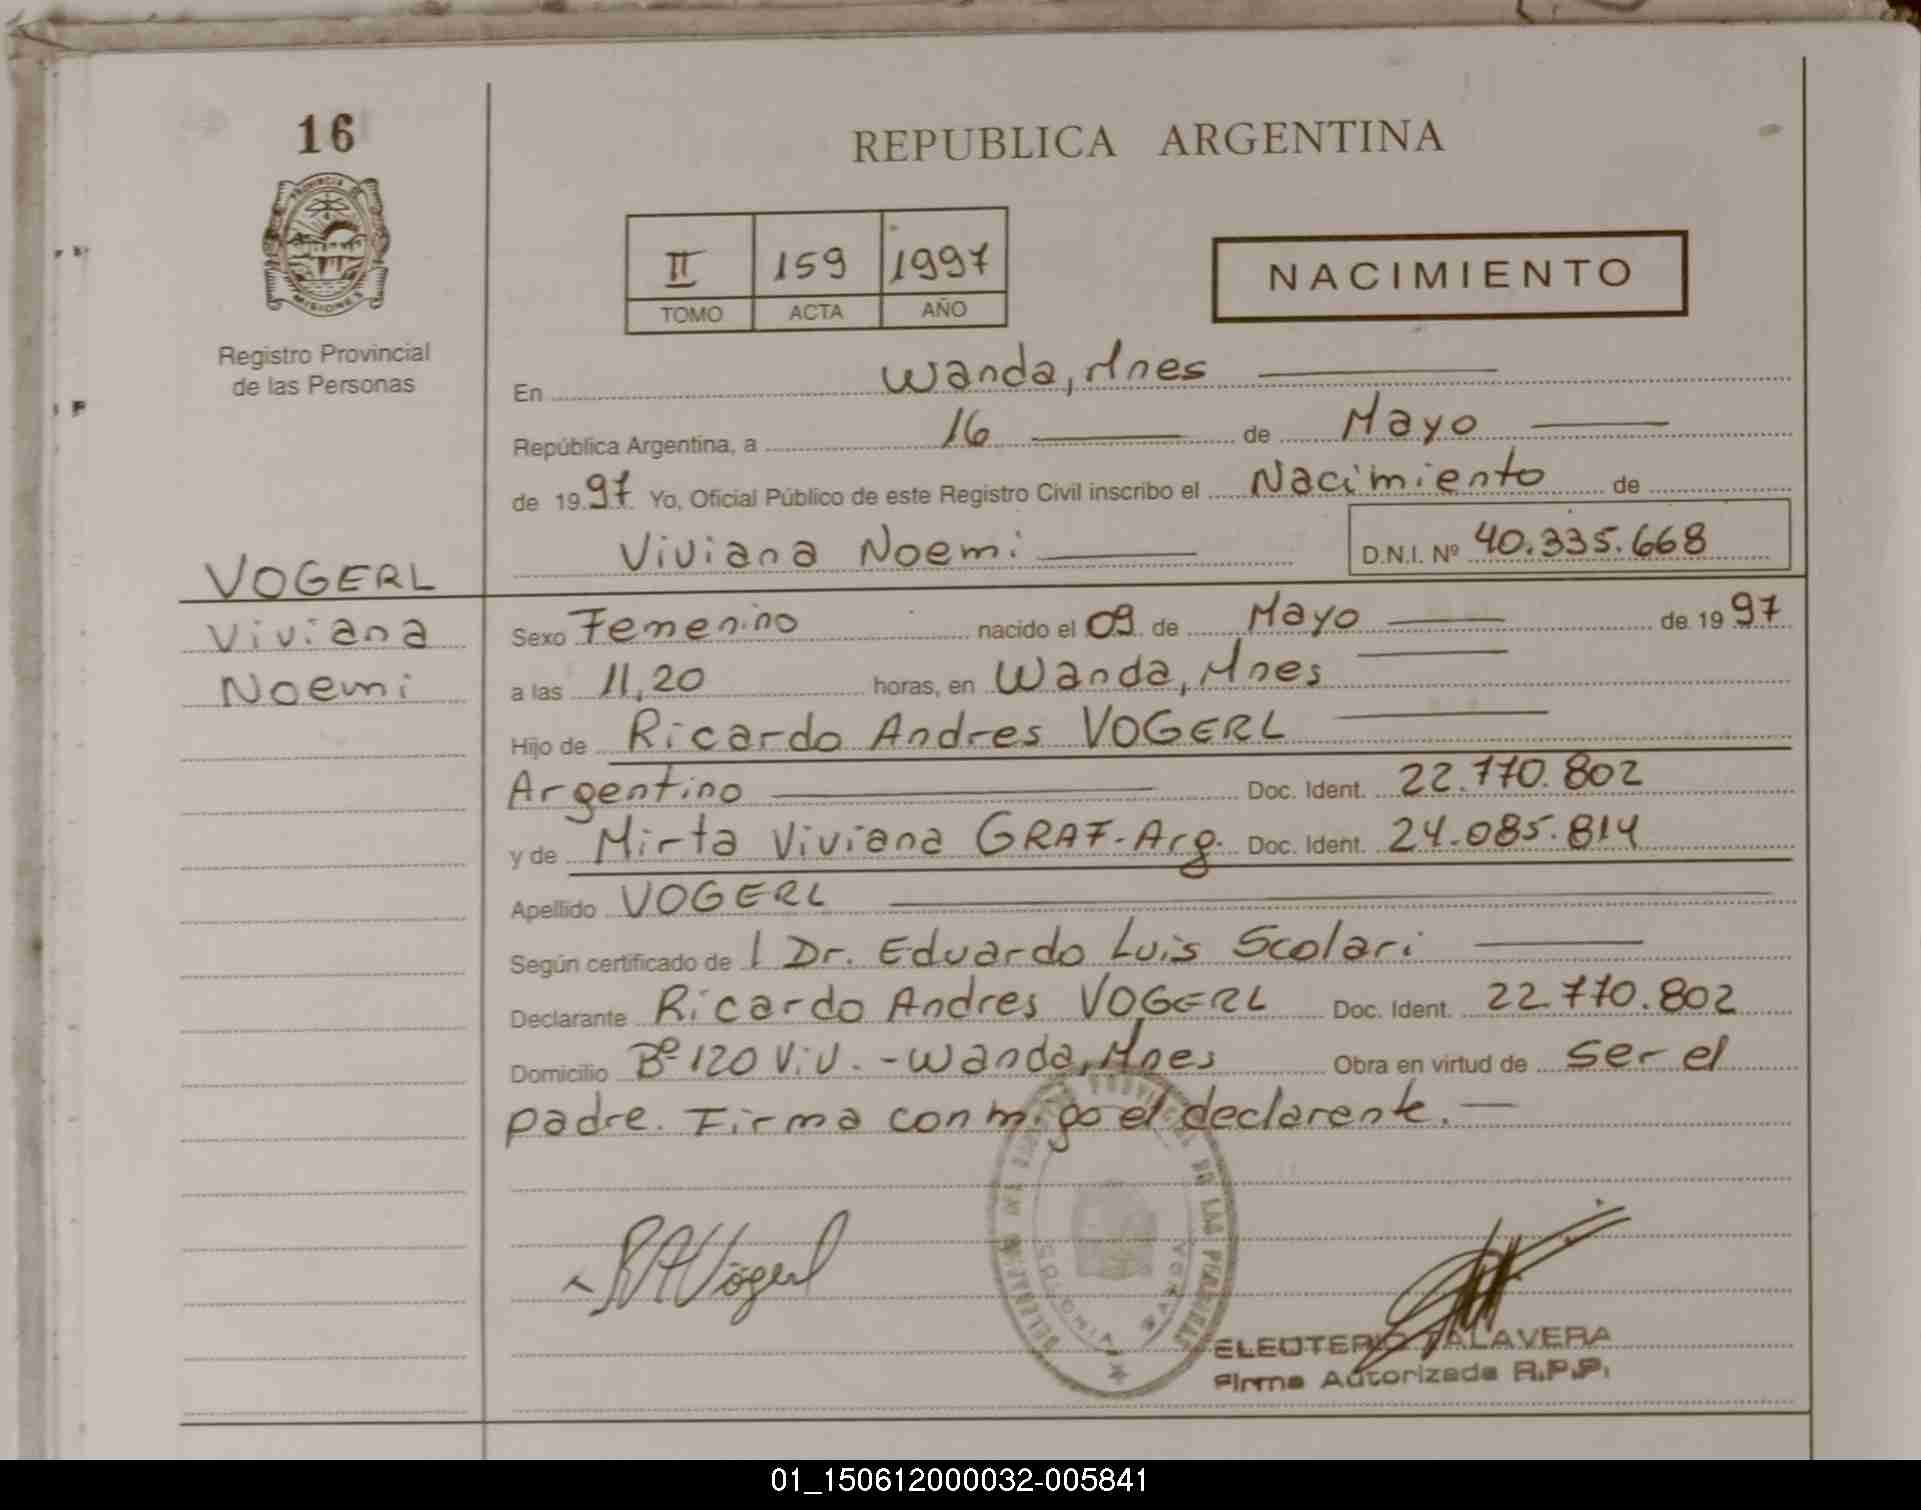 16
PROVINCIA DE
MISIONES
Registro Provincial
de las Personas
VOGERL
Viviana
Noemi
REPUBLICA ARGENTINA
II 159 1997
TOMO ACTA AÑO
NACIMIENTO
En Wanda, Mnes
República Argentina, a 16 de Mayo
de 1997 Yo, Oficial Público de este Registro Civil inscribo el Nacimiento de
Viviana Noemi D.N.I. Nº 40.335.668
Sexo Femenino nacido el 09 de Mayo de 1997
a las 11,20 horas, en Wanda, Mnes
Hijo de Ricardo Andres VOGERL
Argentino Doc. Ident. 22.770.802
y de Mirta Viviana GRAF - Arg. Doc. Ident. 24.085.814
Apellido VOGERL
Según certificado de l Dr. Eduardo Luis Scolari
Declarante Ricardo Andres VOGERL Doc. Ident. 22.770.802
Domicilio Bº 120 Viv. - Wanda, Mnes Obra en virtud de ser el
padre. Firma conmigo el declarente.
RAVögerl
DEL REGISTRO PROVINCIAL DE LAS PERSONAS
COLONIA WANDA
ELEUTERIO TALAVERA
Firma Autorizada R.P.P.
01_150612000032-005841